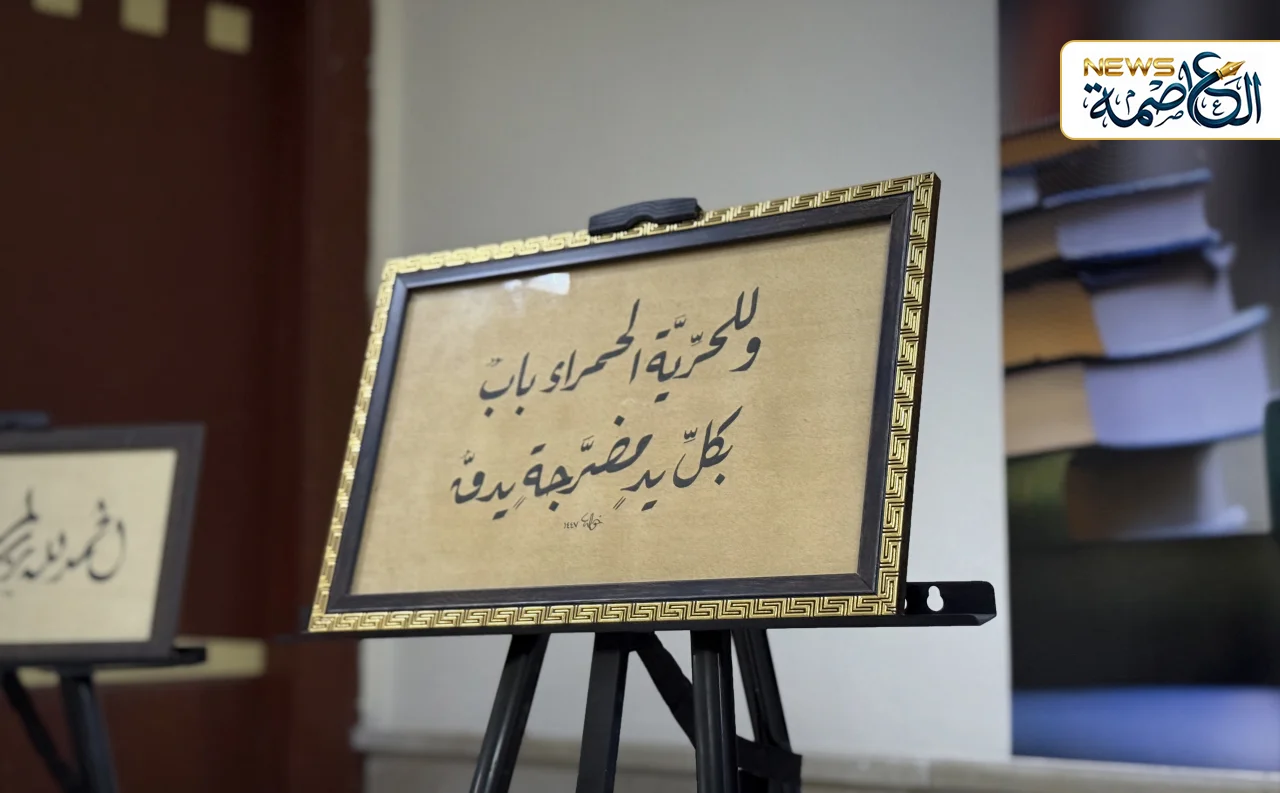 NEWS
العاصمة
وللحرِّيَّة الحمراء بابٌ
بكلِّ يدٍ مضرَّجةٍ يدقُّ
١٤٤٧
الحمد لله